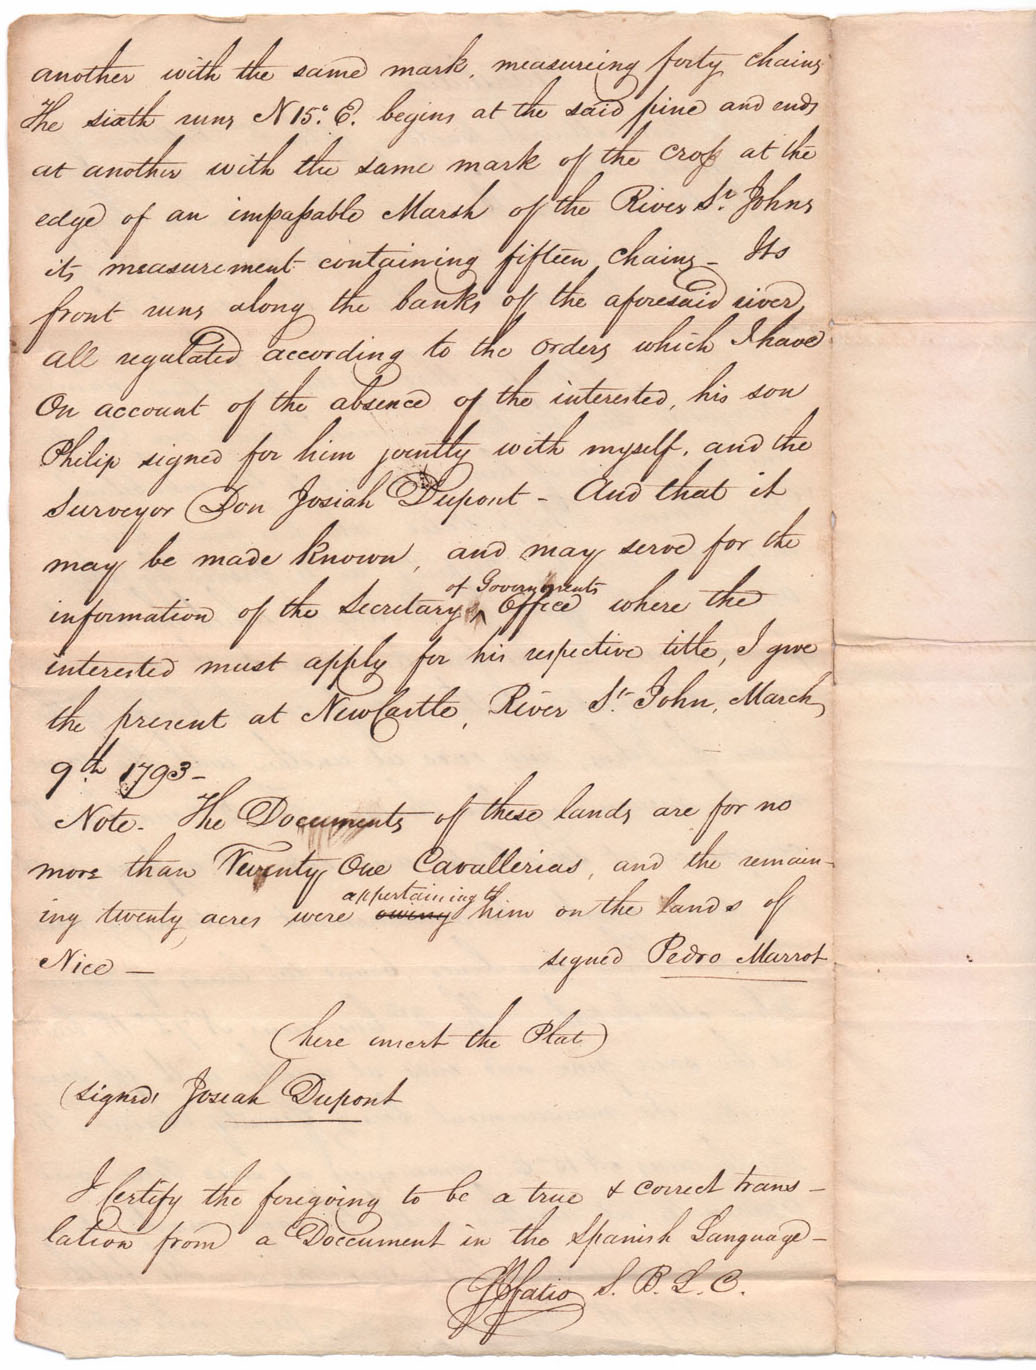 another with the same mark, measureing forty chains
The sixth runs N 15.° E. begins at the said pine and ends
at another with the same mark of the cross at the
edge of an impassable Marsh of the River St. Johns
its measurement containing fifteen chains - Its
front runs along the banks of the aforesaid river,
all regulated according to the orders which I have
On account of the absence of the interested, his son
Philip signed for him jointly with myself, and the
Surveyor Don Josiah Dupont - And that it
may be made known, and may serve for the
of Governments
information of the Secretarys ^ Office where the
interested must apply for his respective title, I give
the present at NewCastle, River St. John, March,
9th 1793 -
Note. The Documents of these lands are for no
more than Twenty One Cavallerias, and the remain-
appertaining to
ing twenty acres were owing him on the lands of
Nice -
signed Pedro Marrot
(here insert the Plat)
(signed) Josiah Dupont
I Certify the foregoing to be a true & correct trans-
lation from a Doccument in the Spanish Language -
Fatio S. B. L. C.